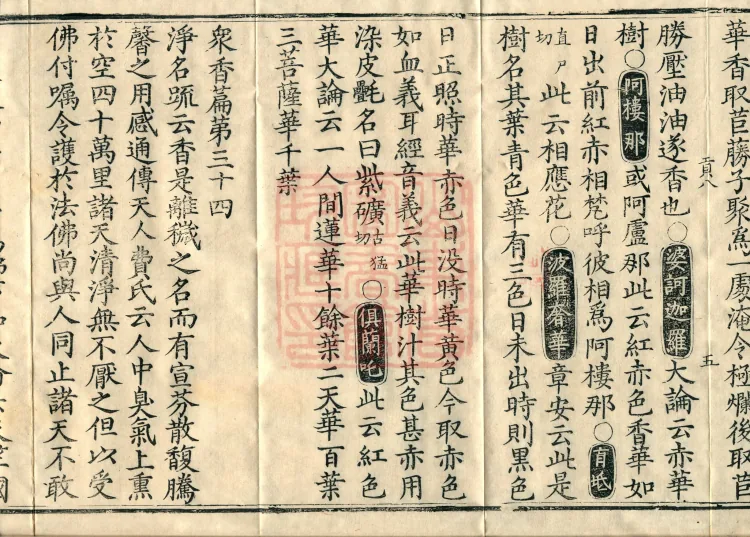 華香取苣藤子聚為一處淹令極爛後取苣
勝壓油油遂香也○婆訶迦羅大論云赤華
樹○阿樓那或阿盧那此云紅赤色香華如
日出前紅赤相梵呼彼相為阿樓那○育坻
直尸切此云相應花○波羅奢華章安云此是
樹名其葉青色華有三色日未出時則黑色
貢八
五
日正照時華赤色日没時華黃色今取赤色
如血義耳經音義云此華樹汁其色甚赤用
染皮㲲名曰紫礦古猛切○俱蘭吒此云紅色
華大論云一人間蓮華十餘葉二天華百葉
三菩薩華千葉
衆香篇第三十四
淨名䟽云香是離穢之名而有宣芬散馥騰
馨之用感通傳天人費氏云人中臭氣上熏
於空四十萬里諸天清淨無不厭之但以受
佛付囑令護於法佛尚與人同止諸天不敢